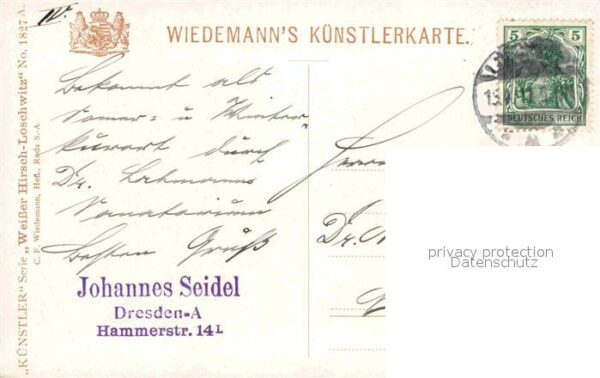 IV.
WIEDEMANN'S KÜNSTLERKARTE.
5 5
DEUTSCHES REICH
Bekannt als
Sommer- u Winter
kurort durch
Dr. Lahmanns
Sanatorium
Besten Gruß
Johannes Seidel
Dresden-A
Hammerstr. 14 L
Herrn
Dr.
privacy protection
Datenschutz
„KÜNSTLER" Serie „Weißer Hirsch-Loschwitz" No. 1827 A.
C. F. Wiedemann, Hofl., Roda S.-A.